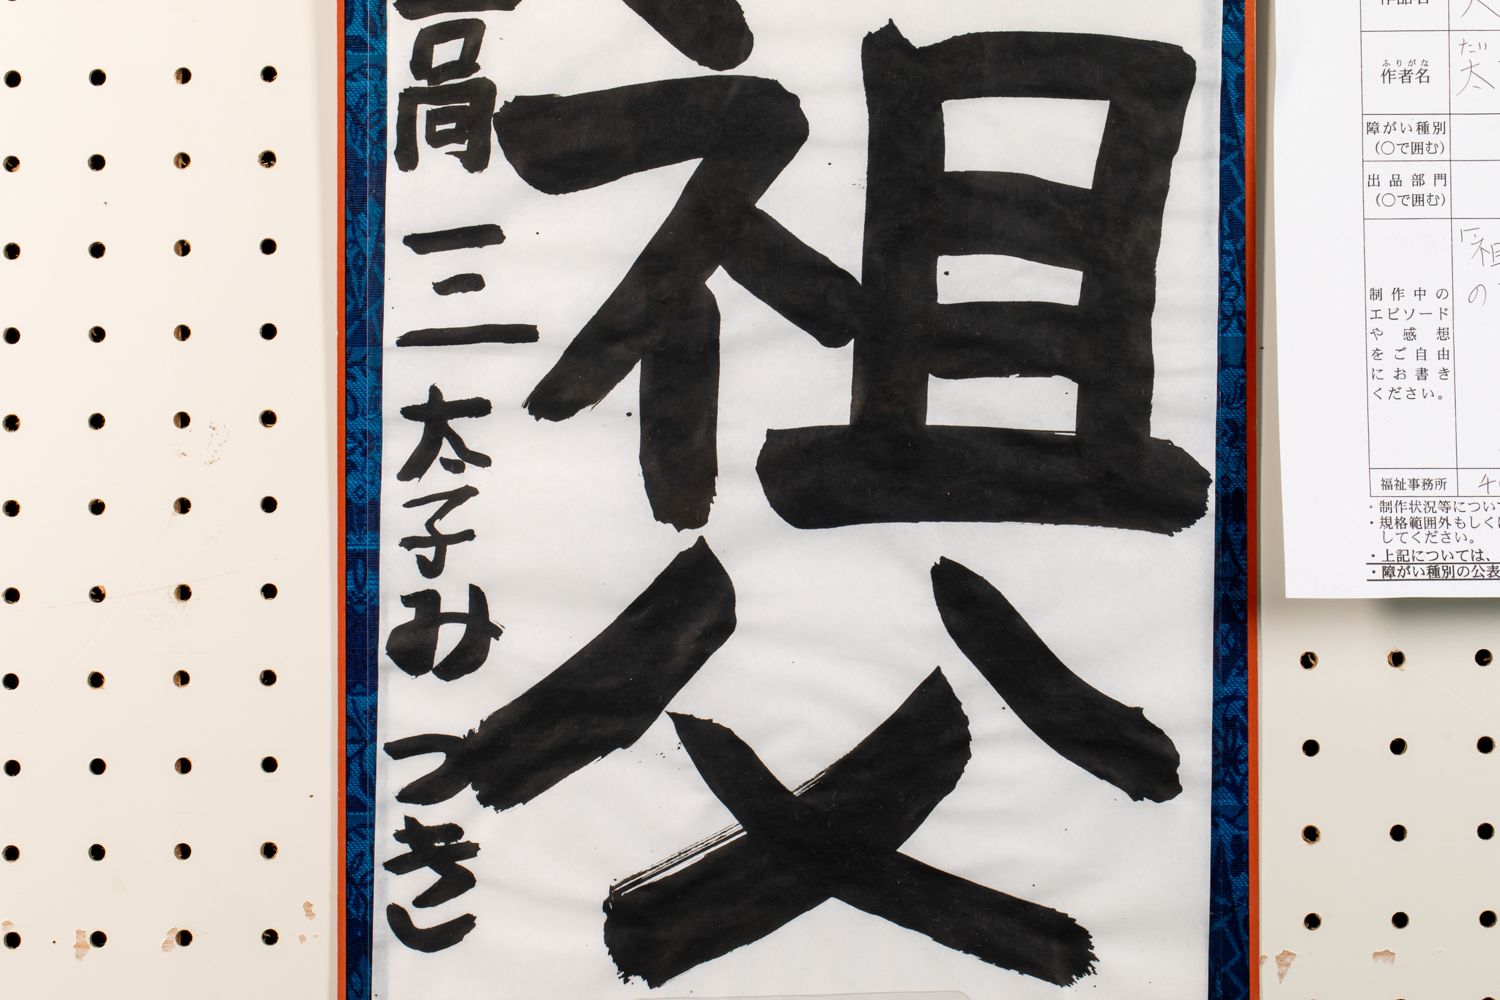 祖父
高三 太子みづき
作品名
ふりがな
作者名
だい
太
障がい種別
(○で囲む)
出品部門
(○で囲む)
制作中の
エピソード
や感想
をご自由
にお書き
ください。
「祖
の
福祉事務所
・制作状況等につい
・規格範囲外もしく
してください。
・上記については、
・障がい種別の公表